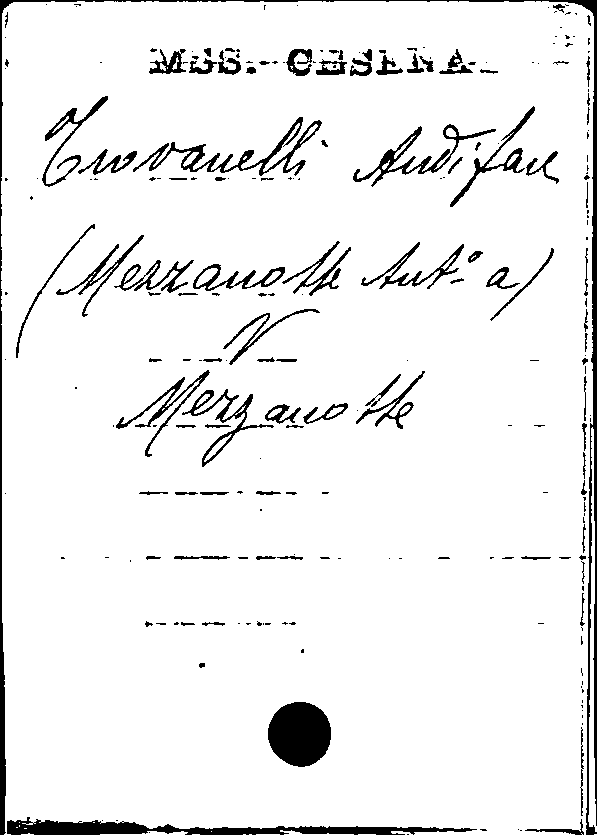 MSS. CESENA
Trovanelli Audifase
(Mezzanotte Ant.º a)
V
Mezzanotte